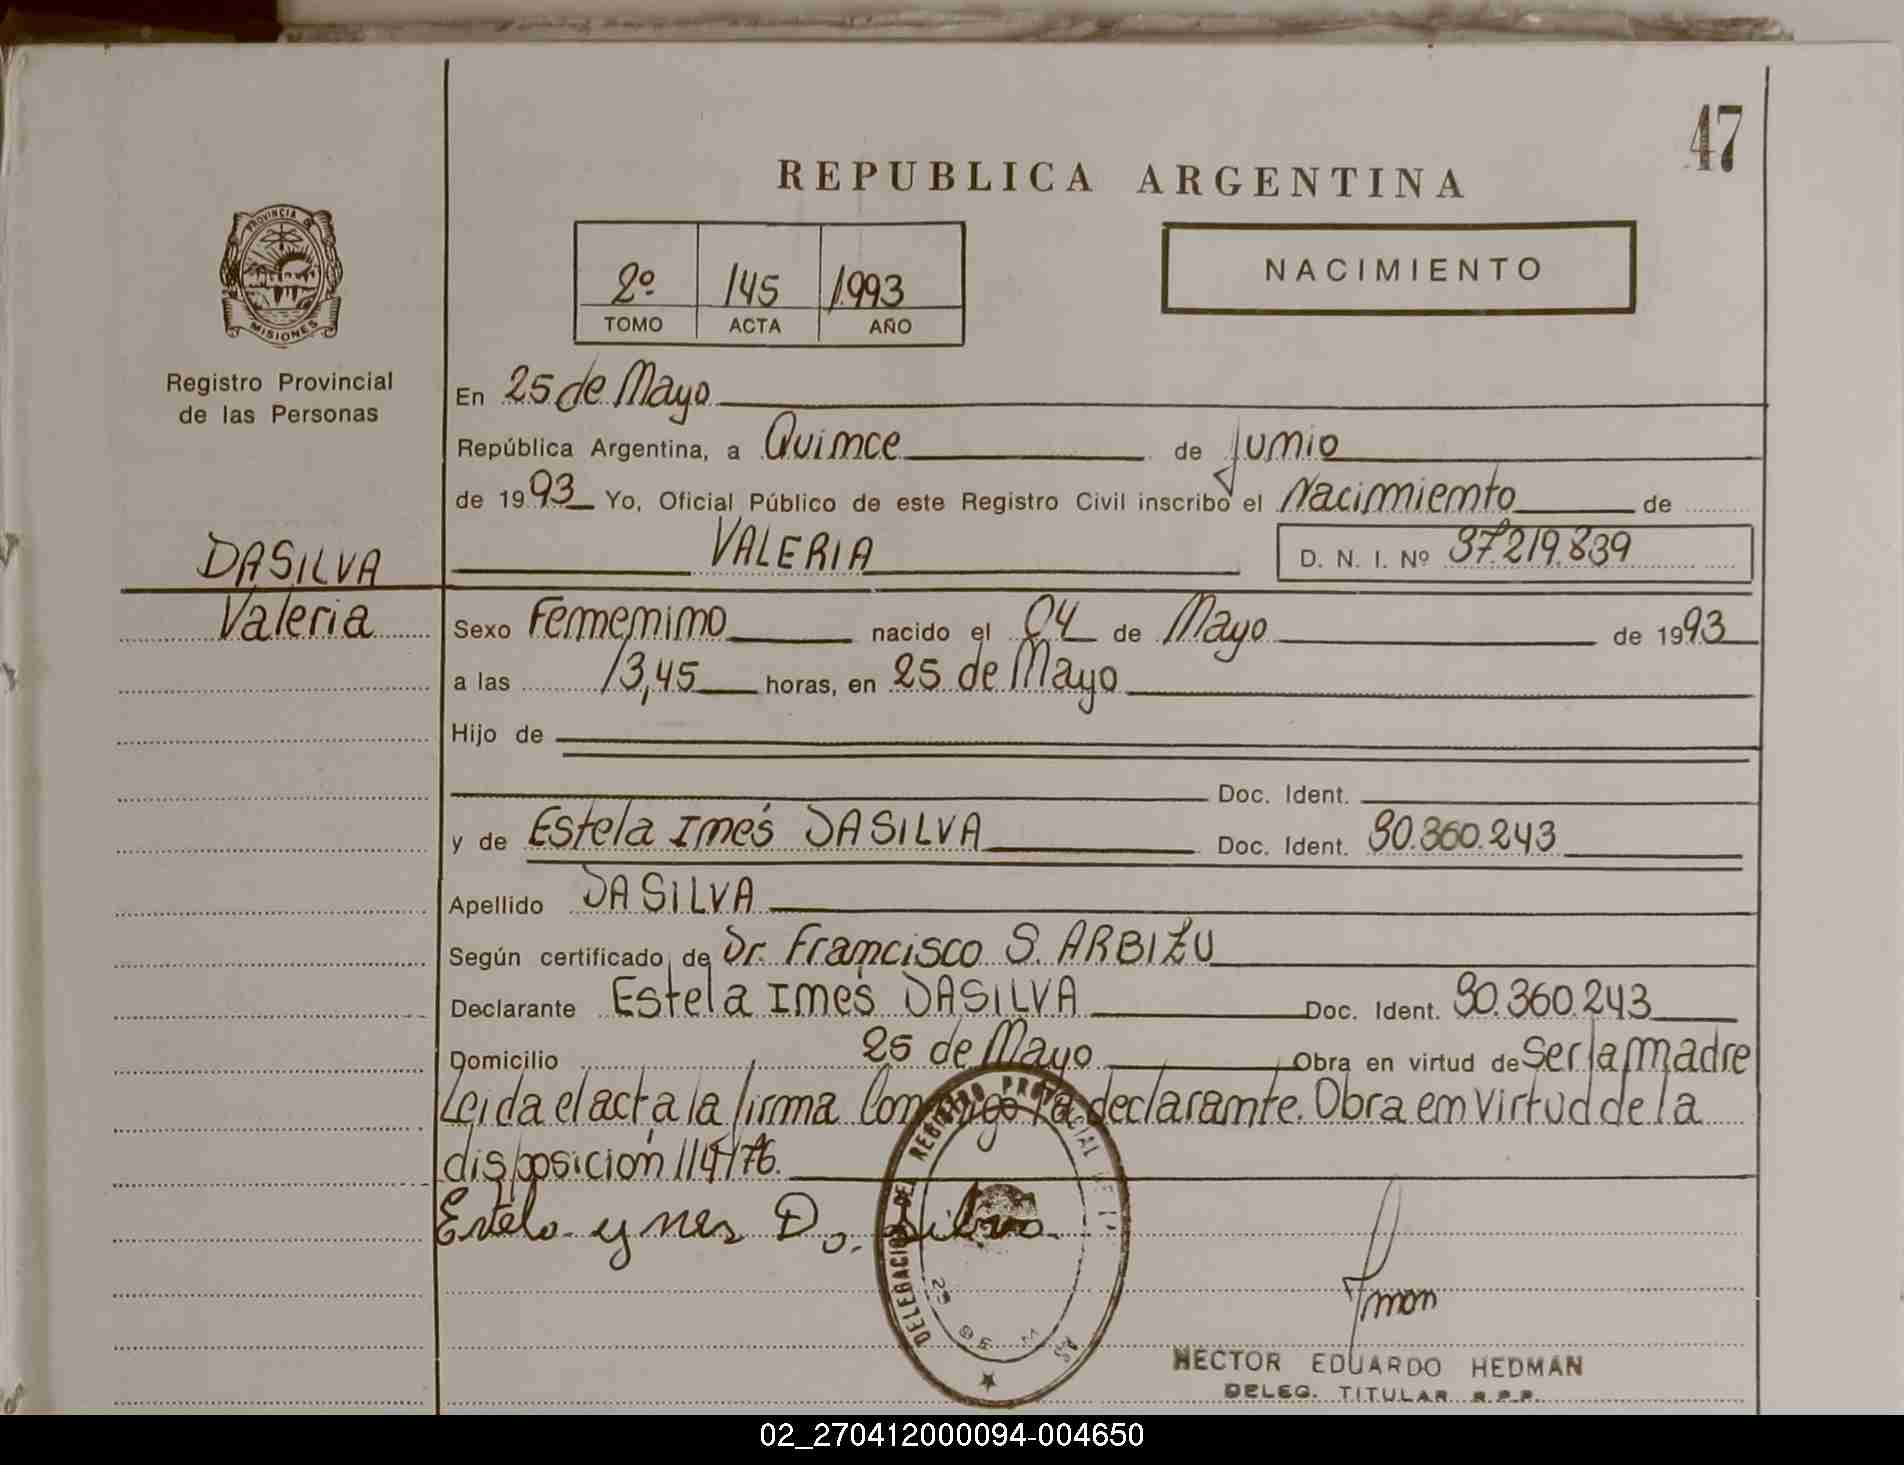 47
REPUBLICA ARGENTINA
PROVINCIA DE
MISIONES
Registro Provincial
de las Personas
2º 145 1993
TOMO ACTA AÑO
NACIMIENTO
En 25 de Mayo
República Argentina, a Quince de Junio
de 1993 Yo, Oficial Público de este Registro Civil inscribo el Nacimiento de
DASILVA
VALERIA D. N. I. Nº 37.219.839
Valeria
Sexo Femenino nacido el 04 de Mayo de 1993
a las 13,45 horas, en 25 de Mayo
Hijo de
Doc. Ident.
y de Estela Inés DASILVA Doc. Ident. 90.360.243
Apellido DASILVA
Según certificado de Dr. Francisco S. ARBIZU
Declarante Estela Inés DASILVA Doc. Ident. 90.360.243
Domicilio 25 de Mayo Obra en virtud de Ser la madre
Leida el acta la firma Conmigo la declarante. Obra en Virtud de la
disposición 114/76.
Estela ynes Da Silva
DELEGACION DEL REGISTRO PROVINCIAL DE
HECTOR EDUARDO HEDMAN
DELEG. TITULAR R.P.P.
02_270412000094-004650